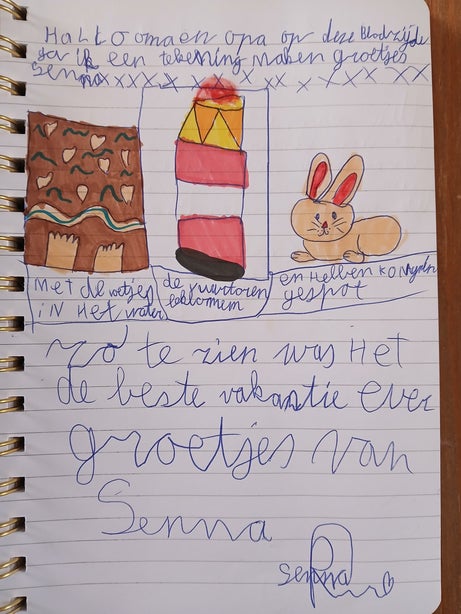 Hallo oma en opa op deze Bladzijde
ga ik een tekening maken groetjes
Senna xxxxxxxxxxxxxx
Met de voetjes
in Het water
de vuurtoren
beklommen
en Hebben konijnen
gespot
zo te zien was Het
de beste vakantie ever
groetjes van
Senna
senna